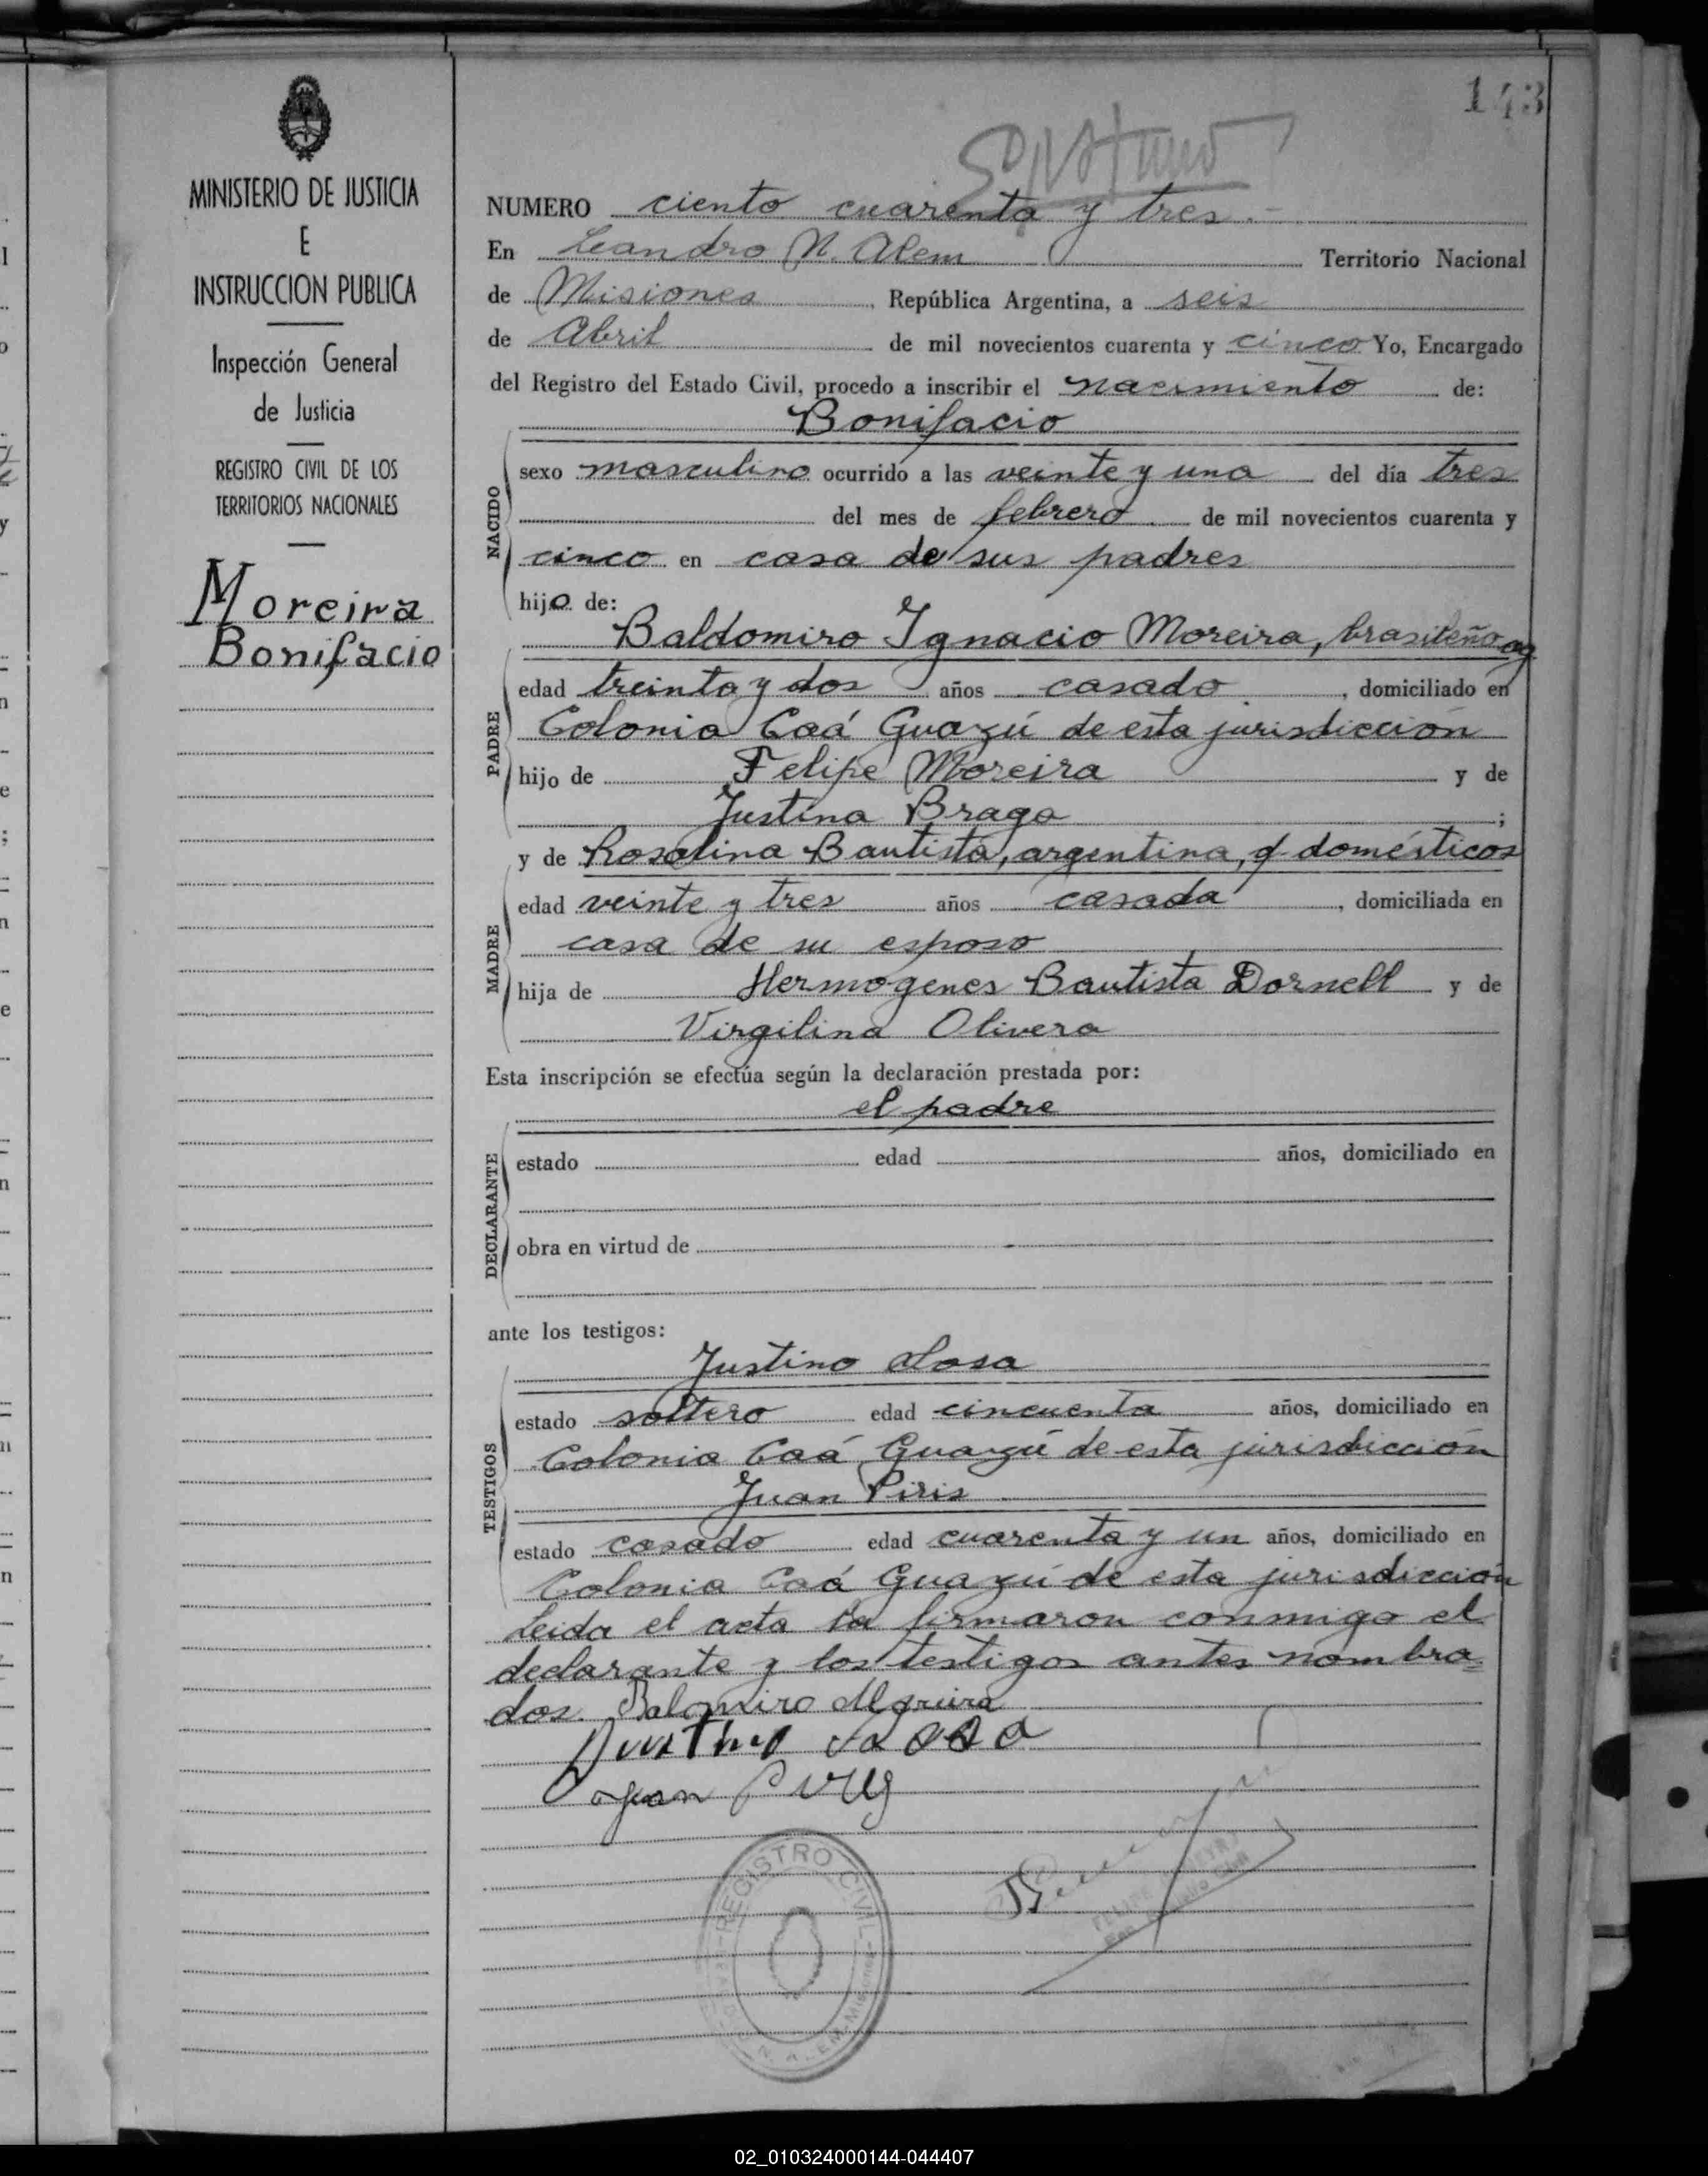 143
MINISTERIO DE JUSTICIA
E
INSTRUCCION PUBLICA
Inspección General
de Justicia
REGISTRO CIVIL DE LOS
TERRITORIOS NACIONALES
Moreira
Bonifacio
NUMERO ciento cuarenta y tres.-
En Leandro N. Alem Territorio Nacional
de Misiones, República Argentina, a seis
de Abril de mil novecientos cuarenta y cinco Yo, Encargado
del Registro del Estado Civil, procedo a inscribir el nacimiento de:
Bonifacio
NACIDO
sexo masculino ocurrido a las veinte y una del día tres
del mes de febrero de mil novecientos cuarenta y
cinco en casa de sus padres
hijo de:
Baldomiro Ignacio Moreira, brasileño ag
PADRE
edad treinta y dos años casado, domiciliado en
Colonia Caá Guazú de esta jurisdicción
hijo de Felipe Moreira y de
Justina Braga;
y de Rosalina Bautista, argentina, q. domésticos
MADRE
edad veinte y tres años casada, domiciliada en
casa de su esposo
hija de Hermogenes Bautista Dornell y de
Virgilina Olivera
Esta inscripción se efectúa según la declaración prestada por:
el padre
DECLARANTE
estado edad años, domiciliado en
obra en virtud de
ante los testigos:
Justino Sosa
TESTIGOS
estado soltero edad cincuenta años, domiciliado en
Colonia Caá Guazú de esta jurisdicción
Juan Piris
estado casado edad cuarenta y un años, domiciliado en
Colonia Caá Guazú de esta jurisdicción
Leida el acta la firmaron conmigo el
declarante y los testigos antes nombra=
dos. Balomiro Moreira
Justino Sosa
Juan Piris
REGISTRO CIVIL
02_010324000144-044407